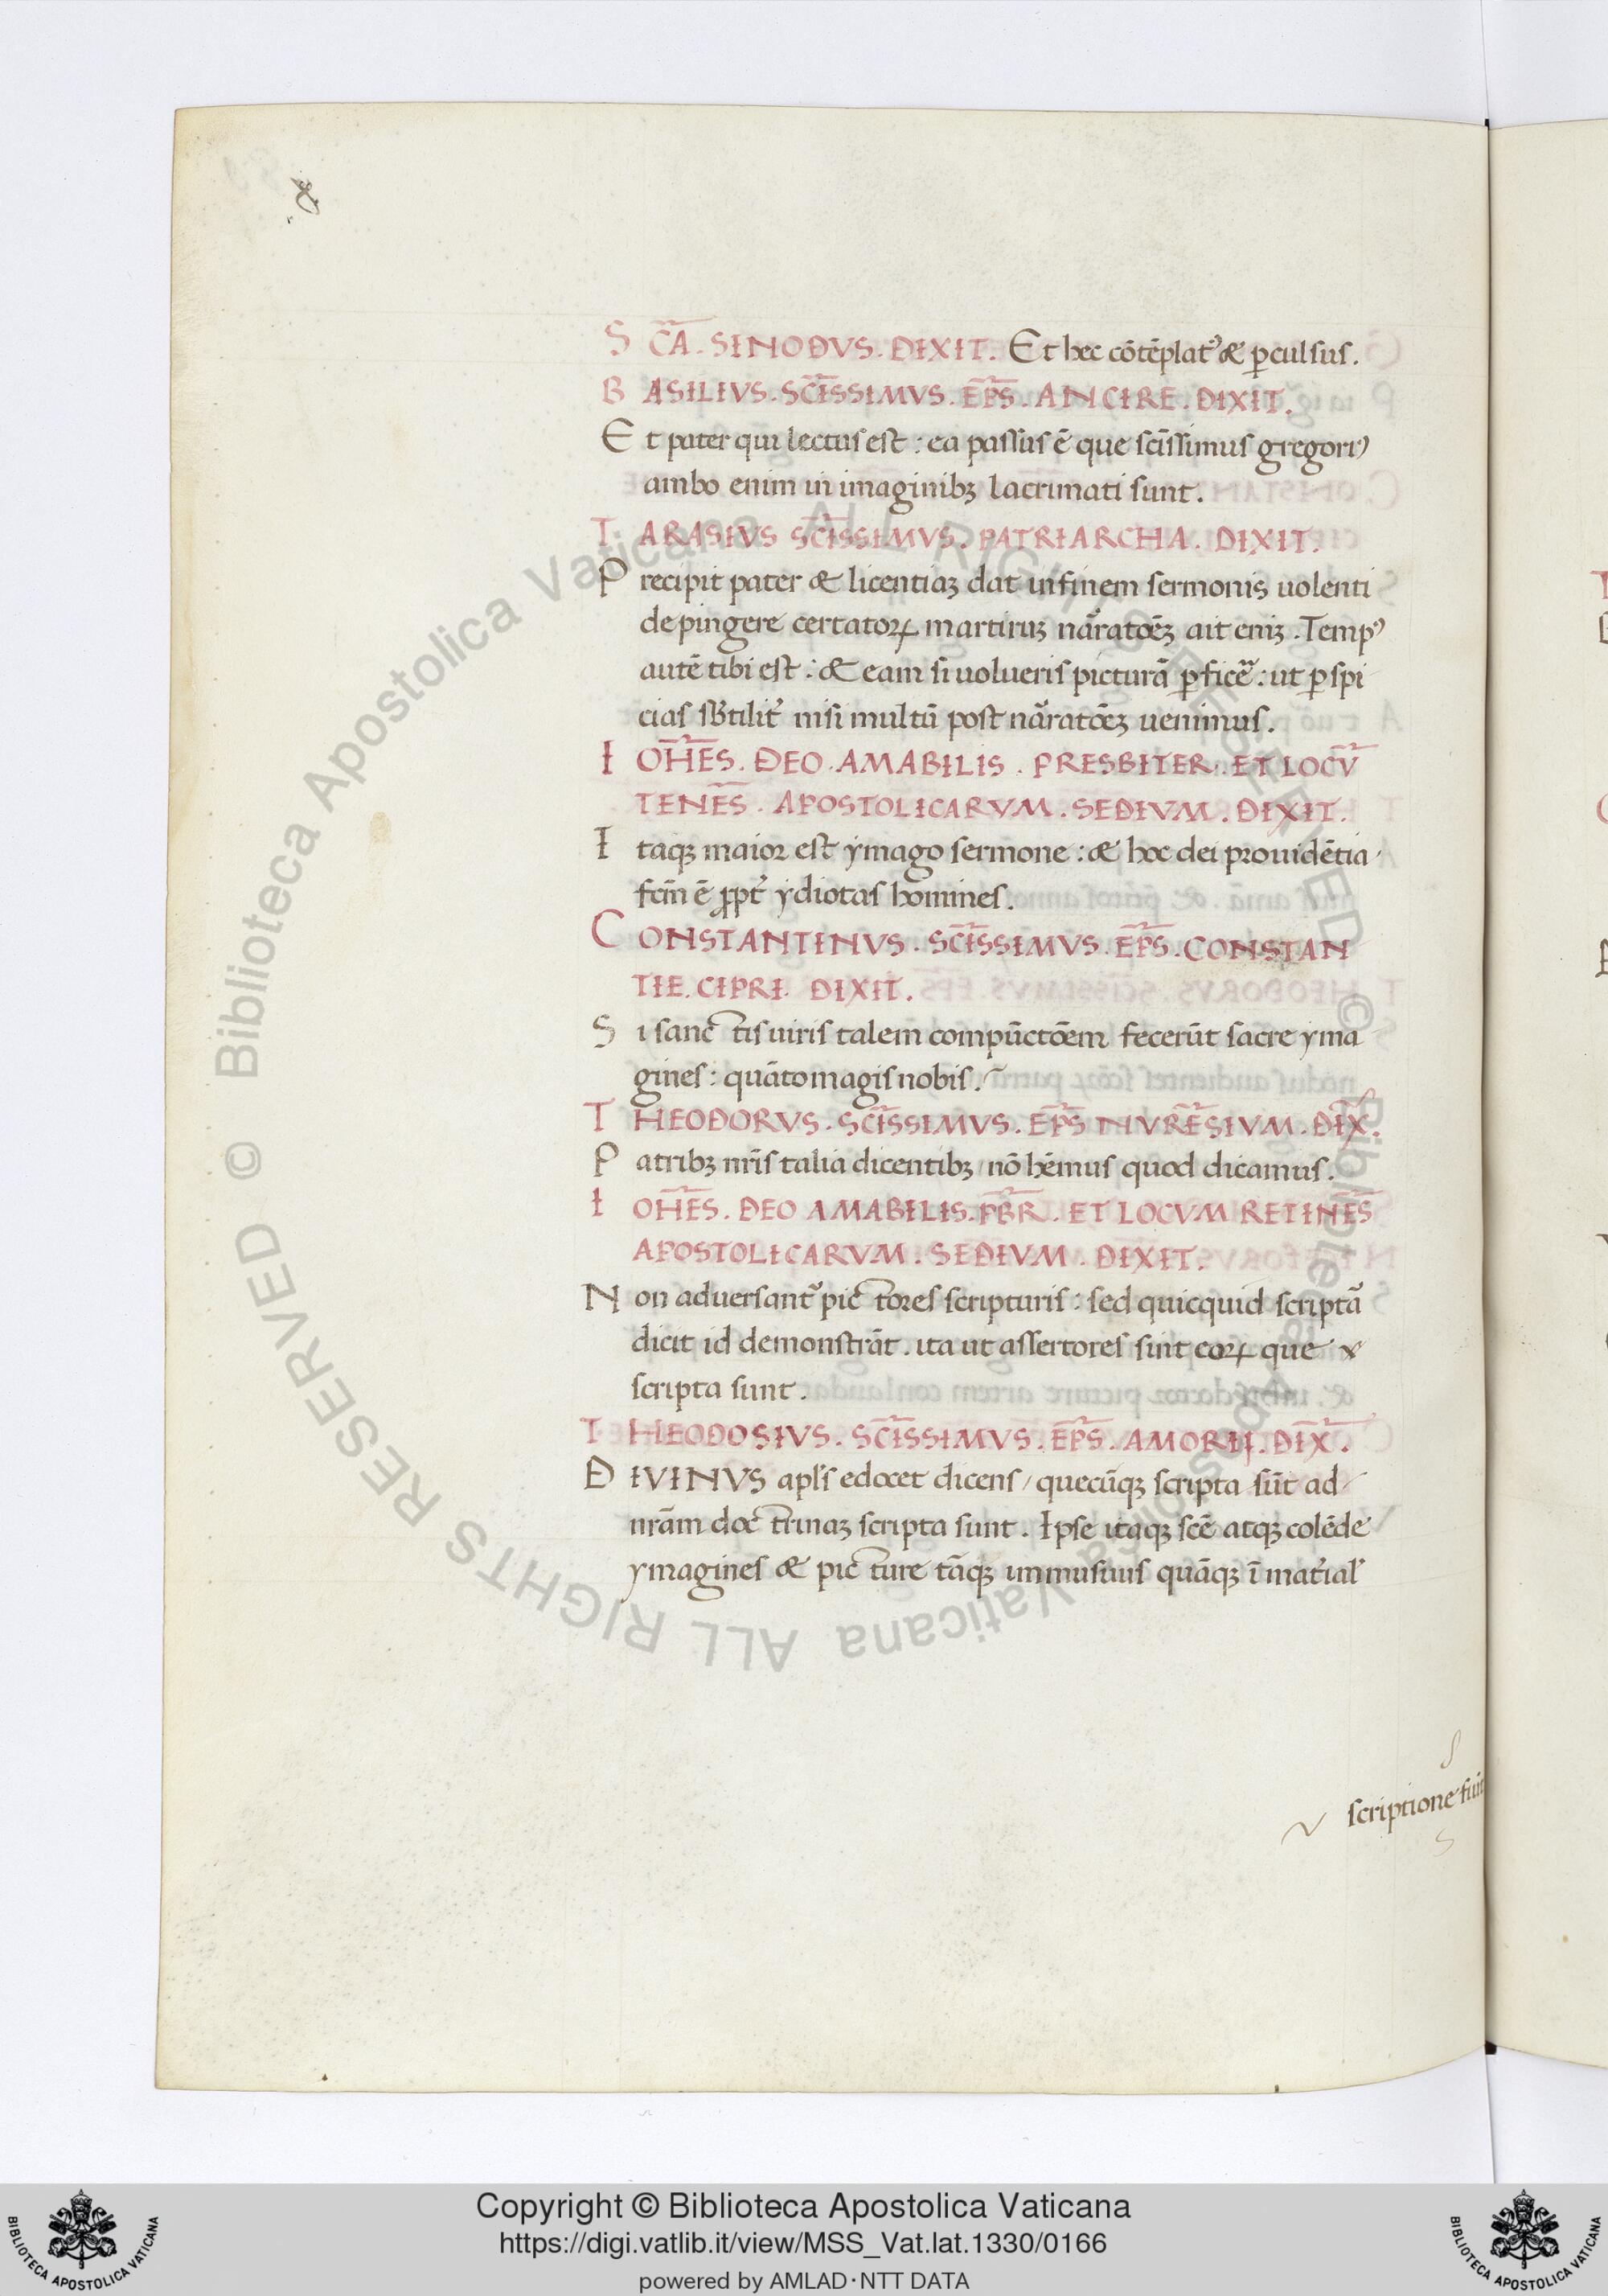 SC̄A. SINODVS. DIXIT. Et hec cōtēplatꝰ & ꝑculsus.
BASILIVS. SC̄ISSIMVS. EP̄S. ANCIRE. DIXIT.
Et pater qui lectus est : ea passus ē que sc̄issimus gregoriꝰ
ambo enim in imaginibꝫ lacrimati sunt.
TARASIVS SC̄ISSIMVS. PATRIARCHA. DIXIT.
Precipit pater & licentiaꝫ dat in finem sermonis uolenti
depingere certatoꝝ martiruꝫ nar̄atōeꝫ ait eniꝫ. Tempꝰ
autē tibi est : & eam si uolueris picturā ꝑficeᷓ : ut ꝑspi
cias sb̄tilit̓ nisi multū post nar̄atōeꝫ uenimus.
IOH̄ES. DEO. AMABILIS. PRESBITER. ET LOCV̄
TENĒS. APOSTOLICARVM. SEDIVM. DIXIT.
Itaqꝫ maior est ymago sermone : & hoc dei prouidētia
fcm̄ ē ꝓpt̓ ydiotas homines.
CONSTANTINVS. SC̄ISSIMVS. EP̄S. CONSTAN
TIE. CIPRI. DIXIT.
Si sanctis uiris talem compūctōem fecerūt sacre yma
gines : quāto magis nobis.
THEODORVS. SC̄ISSIMVS. EP̄S NVRĒSIVM. DIX̄.
Patribꝫ nr̄is talia dicentibꝫ / nō hēmus quod dicamus.
IOH̄ES. DEO AMABILIS. PB̄R. ET LOCVM RETINĒS
APOSTOLICARVM. SEDIVM. DIXIT.
Non aduersant᷑ pictores scripturis : sed quicquid scriptᷓa
dicit id demonstrāt. ita ut assertores sint eoꝝ que
scripta sunt.
THEODOSIVS. SC̄ISSIMVS. EP̄S. AMORII. DIX̄.
DIVINVS apl̄s edocet dicens / quecūqꝫ scripta sūt ad
nr̄am doctrinaꝫ scripta sunt. Ipse itaqꝫ sc̄e atqꝫ colēde
ymagines & picture tāqꝫ in musiuis quāqꝫ ī mat̓ial̓
scriptione
© Biblioteca Apostolica Vaticana ALL RIGHTS RESERVED © Biblioteca Apostolica Vaticana ALL RIGHTS RESERVED
Copyright © Biblioteca Apostolica Vaticana
https://digi.vatlib.it/view/MSS_Vat.lat.1330/0166
powered by AMLAD·NTT DATA
BIBLIOTECA APOSTOLICA VATICANA
BIBLIOTECA APOSTOLICA VATICANA